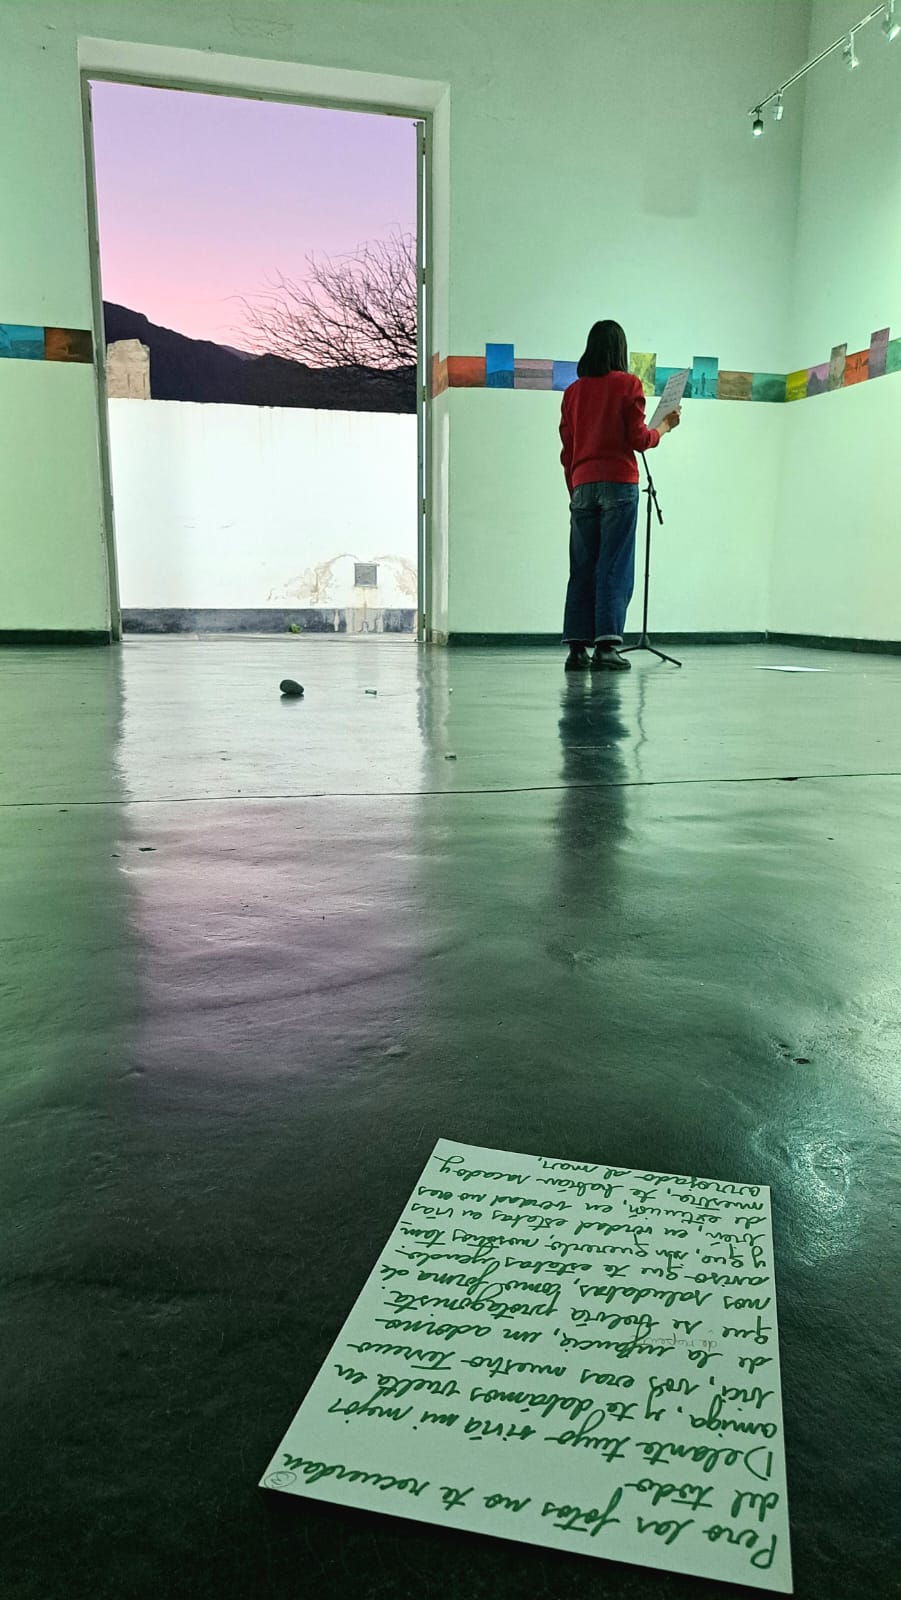 ③
Pero las fotos no te recuerdan
del todo.
Delante tuyo vivía mi mejor
amiga, y te dabámos vuelta en
bici, vos eras nuestro terreno
de la infancia, un adorno
que se volvía protagonista.
nos saludabas, como forma de
aviso que te estabas yendo.
y que, sin quererlo, nosotros tam-
bién, en verdad estabas en vías
de extinción, en verdad no eras
nuestra, te habían sacado y
arrojado al mar,